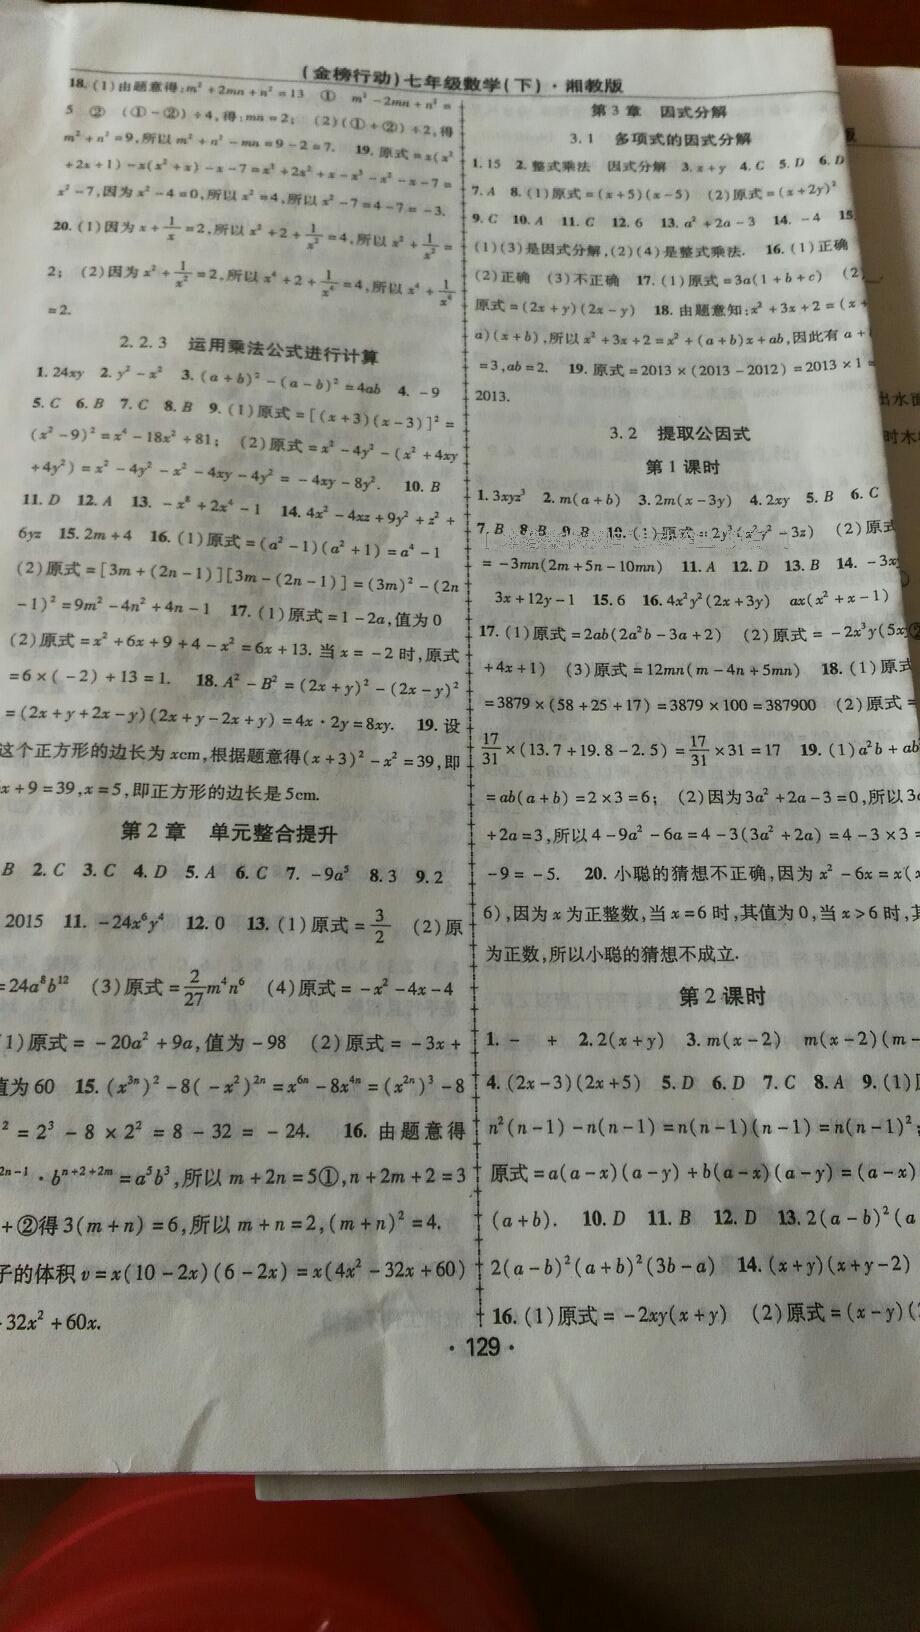 (金榜行动)七年级数学(下)·湘教版
18. (1)由题意得:m²+2mn+n²=13 ① m²-2mn+n²=
5 ② (①-②)÷4,得:mn=2; (2)(①+②)÷2,得
m²+n²=9,所以m²+n²-mn=9-2=7. 19. 原式=x(x²
+2x+1)-x(x²+x)-x-7=x³+2x²+x-x³-x²-x-7=
x²-7,因为x²-4=0,所以x²=4,所以x²-7=4-7=-3.
20. (1)因为x+1/x=2,所以x²+2+1/x²=4,所以x²+1/x²=
2; (2)因为x²+1/x²=2,所以x⁴+2+1/x⁴=4,所以x⁴+1/x⁴
=2.
2.2.3 运用乘法公式进行计算
1. 24xy 2. y²-x² 3. (a+b)²-(a-b)²=4ab 4. -9
5. C 6. B 7. C 8. B 9. (1)原式=[(x+3)(x-3)]²=
(x²-9)²=x⁴-18x²+81; (2)原式=x²-4y²-(x²+4xy
+4y²)=x²-4y²-x²-4xy-4y²=-4xy-8y². 10. B
11. D 12. A 13. -x⁸+2x⁴-1 14. 4x²-4xz+9y²+z²+
6yz 15. 2m+4 16. (1)原式=(a²-1)(a²+1)=a⁴-1
(2)原式=[3m+(2n-1)][3m-(2n-1)]=(3m)²-(2n
-1)²=9m²-4n²+4n-1 17. (1)原式=1-2a,值为0
(2)原式=x²+6x+9+4-x²=6x+13. 当x=-2时,原式
=6×(-2)+13=1. 18. A²-B²=(2x+y)²-(2x-y)²
=(2x+y+2x-y)(2x+y-2x+y)=4x·2y=8xy. 19. 设
这个正方形的边长为xcm,根据题意得(x+3)²-x²=39,即
x+9=39,x=5,即正方形的边长是5cm.
第2章 单元整合提升
B 2. C 3. C 4. D 5. A 6. C 7. -9a⁵ 8. 3 9. 2
2015 11. -24x⁶y⁴ 12. 0 13. (1)原式=3/2 (2)原
=24a⁸b¹² (3)原式=2/27m⁴n⁶ (4)原式=-x²-4x-4
(1)原式=-20a²+9a,值为-98 (2)原式=-3x+
值为60 15. (x³ⁿ)²-8(-x²)²ⁿ=x⁶ⁿ-8x⁴ⁿ=(x²ⁿ)³-8
²=2³-8×2²=8-32=-24. 16. 由题意得
²ⁿ⁻¹·bⁿ⁺²⁺²ᵐ=a⁵b³,所以m+2n=5①,n+2m+2=3
+②得3(m+n)=6,所以m+n=2,(m+n)²=4.
子的体积v=x(10-2x)(6-2x)=x(4x²-32x+60)
-32x²+60x.
第3章 因式分解
3.1 多项式的因式分解
1. 15 2. 整式乘法 因式分解 3. x+y 4. C 5. D 6. D
7. A 8. (1)原式=(x+5)(x-5) (2)原式=(x+2y)²
9. C 10. A 11. C 12. 6 13. a²+2a-3 14. -4 15.
(1)(3)是因式分解,(2)(4)是整式乘法. 16. (1)正确
(2)正确 (3)不正确 17. (1)原式=3a(1+b+c) (2)
原式=(2x+y)(2x-y) 18. 由题意知:x²+3x+2=(x+
a)(x+b),所以x²+3x+2=x²+(a+b)x+ab,因此有a+b
=3,ab=2. 19. 原式=2013×(2013-2012)=2013×1=
2013.
3.2 提取公因式
第1课时
1. 3xyz³ 2. m(a+b) 3. 2m(x-3y) 4. 2xy 5. B 6. C
7. B 8. B 9. B 10. (1)原式=2y³(x²y²-3z) (2)原式
=-3mn(2m+5n-10mn) 11. A 12. D 13. B 14. -3xy
3x+12y-1 15. 6 16. 4x²y²(2x+3y) ax(x²+x-1)
17. (1)原式=2ab(2a²b-3a+2) (2)原式=-2x³y(5x
+4x+1) (3)原式=12mn(m-4n+5mn) 18. (1)原式
=3879×(58+25+17)=3879×100=387900 (2)原式=
17/31×(13.7+19.8-2.5)=17/31×31=17 19. (1)a²b+ab²
=ab(a+b)=2×3=6; (2)因为3a²+2a-3=0,所以3a
+2a=3,所以4-9a²-6a=4-3(3a²+2a)=4-3×3=
-9=-5. 20. 小聪的猜想不正确,因为x²-6x=x(x
6),因为x为正整数,当x=6时,其值为0,当x>6时,其
为正数,所以小聪的猜想不成立.
第2课时
1. - + 2. 2(x+y) 3. m(x-2) m(x-2)(m-
4. (2x-3)(2x+5) 5. D 6. D 7. C 8. A 9. (1)原
n²(n-1)-n(n-1)=n(n-1)(n-1)=n(n-1)²;
原式=a(a-x)(a-y)+b(a-x)(a-y)=(a-x)
(a+b). 10. D 11. B 12. D 13. 2(a-b)²(a
2(a-b)²(a+b)²(3b-a) 14. (x+y)(x+y-2)
16. (1)原式=-2xy(x+y) (2)原式=(x-y)(
·129·
出水面
时木